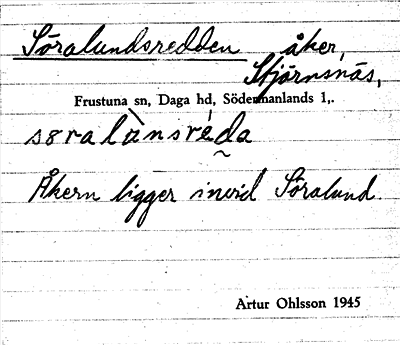 Söralundsredden åker,
Stjärnsnäs,
Frustuna sn, Daga hd, Södermanlands l,.
søralùnsréda
Åkern ligger invid Söralund.
Artur Ohlsson 1945